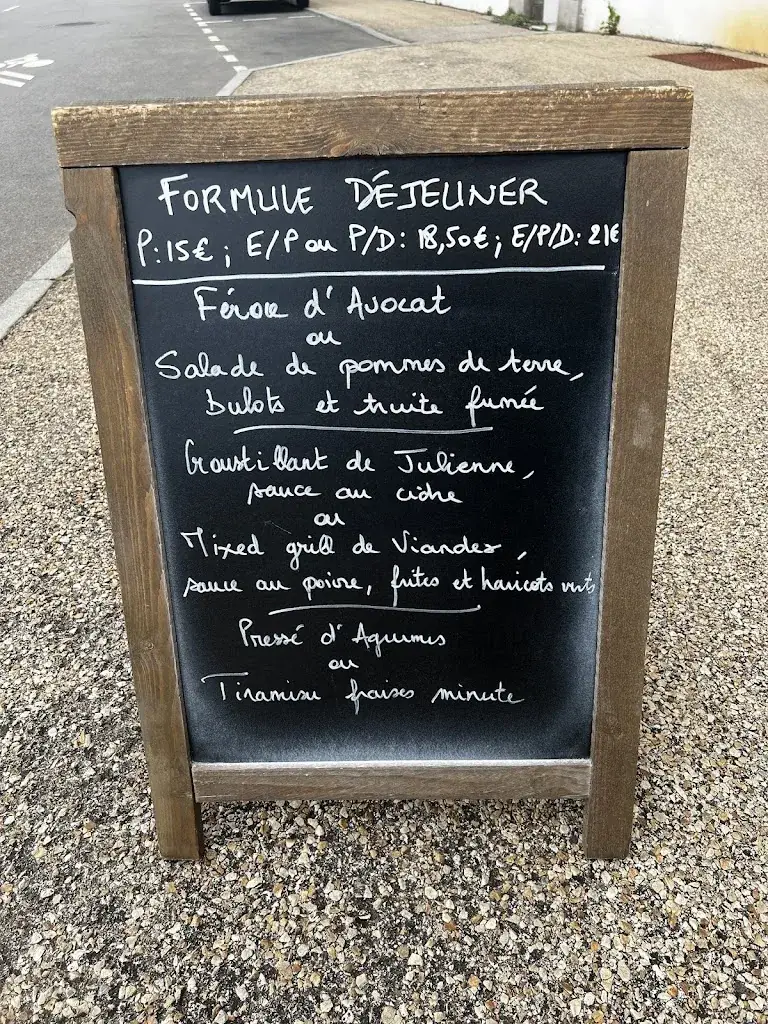 FORMULE DÉJEUNER
P: 15€ ; E/P ou P/D: 18,50€ ; E/P/D: 21€
Féroce d'Avocat
ou
Salade de pommes de terre,
bulots et truite fumée
Croustillant de Julienne,
sauce au cidre
ou
Mixed grill de Viandes,
sauce au poivre, frites et haricots verts
Pressé d'Agrumes
ou
Tiramisu fraises minute